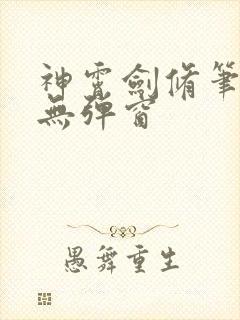 神霄劍脩筆
無彈窗
愚舞重生